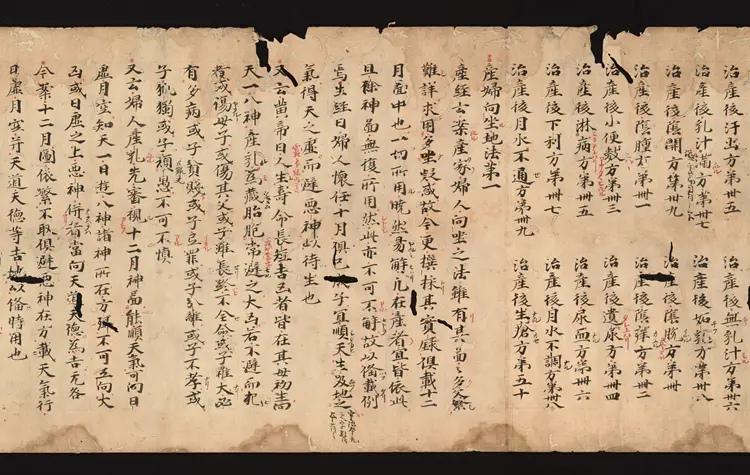 治産後汗出方第卅五 治産後無乳汁方第卅六
治産後乳汁滿方第卅七 治産後妬乳方第卅八
治産後陰開方第卅九 治産後陰脱方第卌
治産後陰腫方第卌一 治産後陰痒方第卌二
治産後小便數方第卌三 治産後遺尿方第卌四
治産後淋病方第卌五 治産後尿血方第卌六
治産後下利方第卌七 治産後月水不調方第卌八
治産後月水不通方第卌九 治産後生瘡方第五十
産婦向坐地法第一
産經云案産家婦人向坐之法雖有其啚々多文繁
難詳求用多生疑或故今更撰採其實錄俱載十二
月啚中也一切所用曉然易解凡在産者宜皆依此
且餘神啚無復所用然此亦不可不解故以備載例
焉生經曰婦人懷任十月俱已成子宜順天生及地之
氣得天之虛而避惡神以待生也
又云帝曰人生壽命長短吉凶者皆在其母初生向
天一八神産乳及藏胎胞常避之大凶若不避而犯
者或傷母子或傷其父或子雖長終不全命或子雖大必
有多病或子貧賤或子罪或子別離或子不孝或
子孤獨或子頑愚不可不慎
又云婦人産乳先審視十二月神啚能順天氣可向日
虛月空知天一日遊八神諸神所在方鄉不可互向大
凶或日虛之上惡神併者當向天道天德爲吉无咎
今案十二月圖依繁不取俱避惡神在方載天氣行
日虛月空并天道天德等吉地以備時用也